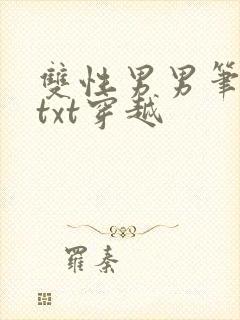 雙性男男筆
txt穿越
羅秦